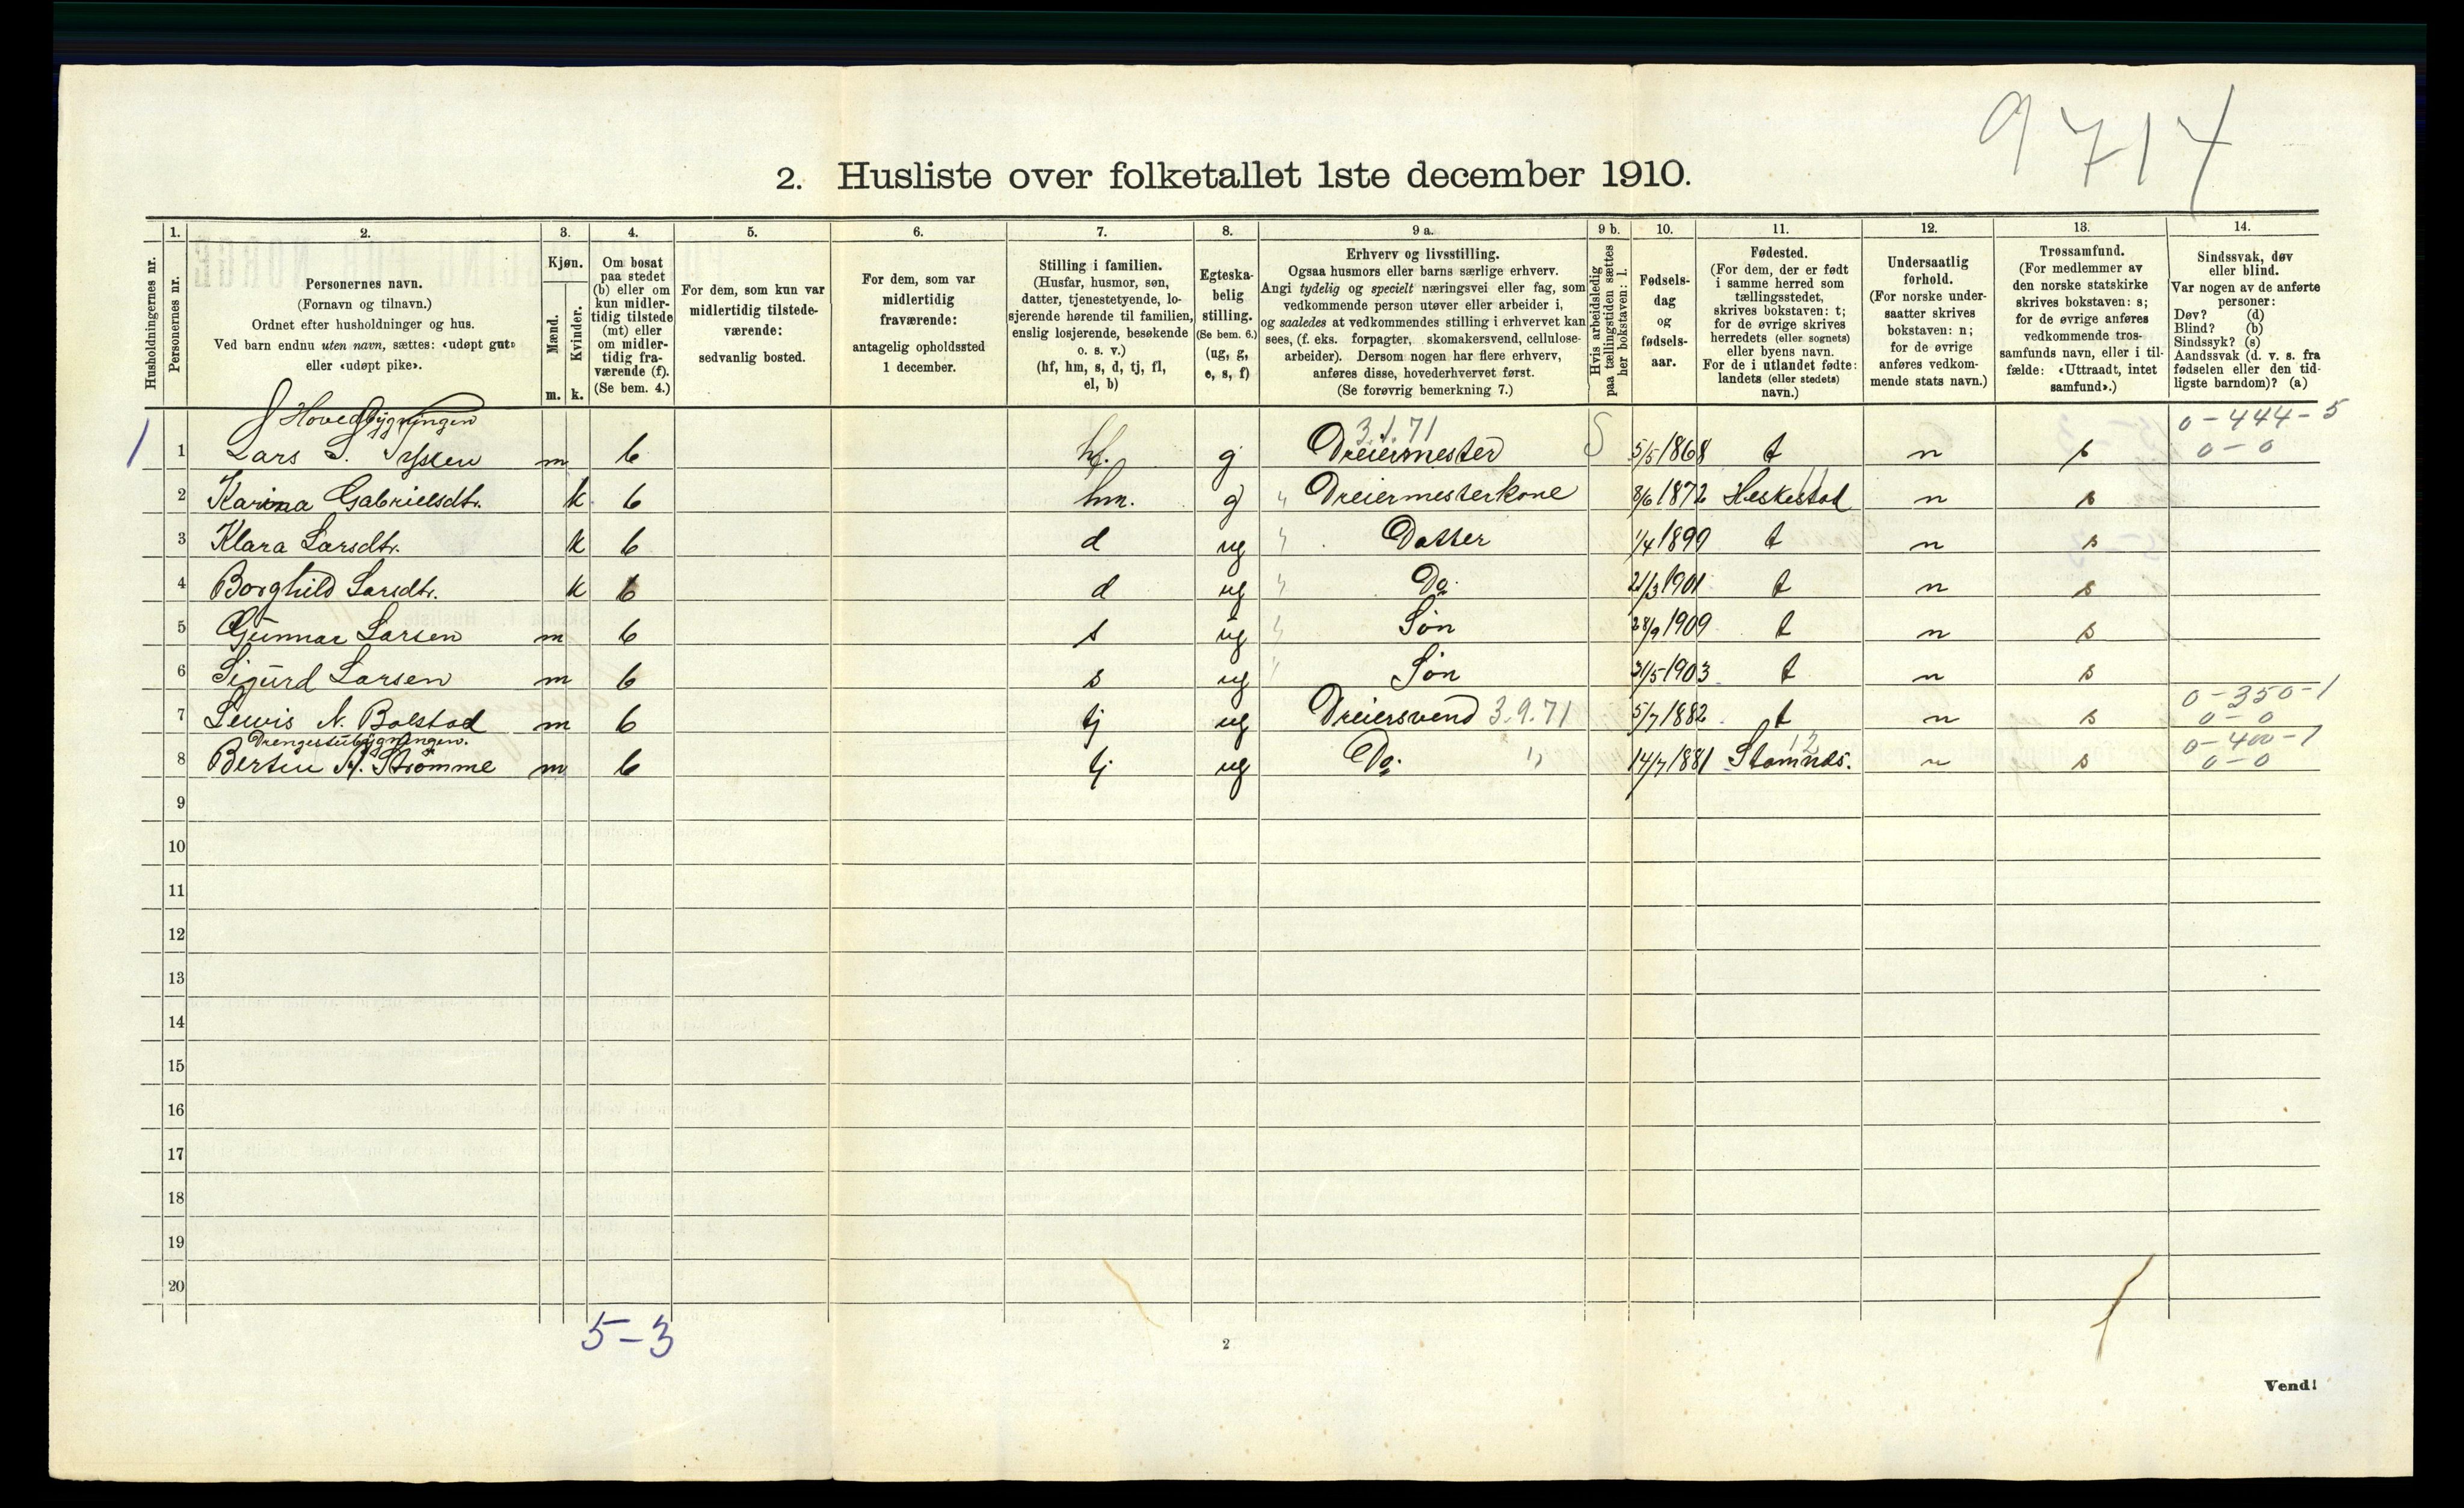 9714
2. Husliste over folketallet 1ste december 1910.
Husholdningernes nr.
1.
Personernes nr.
2.
Personernes navn.
(Fornavn og tilnavn.)
Ordnet efter husholdninger og hus.
Ved barn endnu uten navn, sættes: «udøpt gut»
eller «udøpt pike».
3.
Kjøn.
Mænd.
Kvinder.
m. k.
4.
Om bosat
paa stedet
(b) eller om
kun midler-
tidig tilstede
(mt) eller
om midler-
tidig fra-
værende (f).
(Se bem. 4.)
5.
For dem, som kun var
midlertidig tilstede-
værende:
sedvanlig bosted.
6.
For dem, som var
midlertidig
fraværende:
antagelig opholdssted
1 december.
7.
Stilling i familien.
(Husfar, husmor, søn,
datter, tjenestetyende, lo-
sjerende hørende til familien,
enslig losjerende, besøkende
o. s. v.)
(hf, hm, s, d, tj, fl,
el, b)
8.
Egteska-
belig
stilling.
(Se bem. 6.)
(ug, g,
e, s, f)
9 a.
Erhverv og livsstilling.
Ogsaa husmors eller barns særlige erhverv.
Angi tydelig og specielt næringsvei eller fag, som
vedkommende person utøver eller arbeider i,
og saaledes at vedkommendes stilling i erhvervet kan
sees, (f. eks. forpagter, skomakersvend, cellulose-
arbeider). Dersom nogen har flere erhverv,
anføres disse, hovederhvervet først.
(Se forøvrig bemerkning 7.)
9 b.
Hvis arbeidsledig
paa tællingstiden sættes
her bokstaven: l.
10.
Fødsels-
dag
og
fødsels-
aar.
11.
Fødested.
(For dem, der er født
i samme herred som
tællingsstedet,
skrives bokstaven: t;
for de øvrige skrives
herredets (eller sognets)
eller byens navn.
For de i utlandet fødte:
landets (eller stedets)
navn.)
12.
Undersaatlig
forhold.
(For norske under-
saatter skrives
bokstaven: n;
for de øvrige
anføres vedkom-
mende stats navn.)
13.
Trossamfund.
(For medlemmer av
den norske statskirke
skrives bokstaven: s;
for de øvrige anføres
vedkommende tros-
samfunds navn, eller i til-
fælde: «Uttraadt, intet
samfund».)
14.
Sindssvak, døv
eller blind.
Var nogen av de anførte
personer:
Døv? (d)
Blind? (b)
Sindssyk? (s)
Aandssvak (d. v. s. fra
fødselen eller den tid-
ligste barndom)? (a)
I Hovedbygningen 3.1.71 0-444-5
1 1 Lars S. m b hf. g Dreiermester S 5/5 1868 t n s 0-0
2 Karina Gabrielsdtr. k b hm. g " Dreiermesterkone 8/6 1872 Heskestad n s
3 Klara Larsdtr. k b d ug " Datter 1/4 1899 t n s
4 Borghild Larsdtr. k b d ug " Do. 21/3 1901 t n s
5 Gunnar Larsen m b s ug " Søn 28/9 1909 t n s
6 Sigurd Larsen m b s ug " Søn 31/5 1903 t n s
0-350-1
7 Lewis N. Bolstad m b tj ug Dreiersvend 3.9.71 5/7 1882 t n s 0-0
Drengestubygningen. 12 0-400-1
8 Bertin N. Strømme m b tj ug Do. " 14/7 1881 Stamnæs. n s 0-0
9
10
11
12
13
14
15
16
17
18
19
20
5-3
2
Vend!